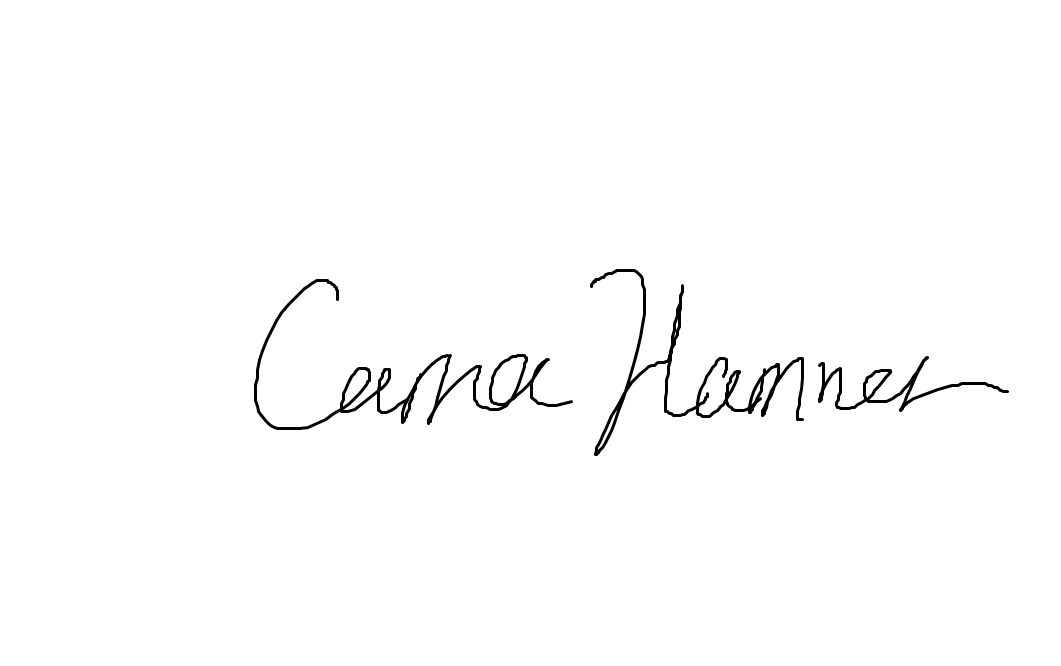 Cama Hanner